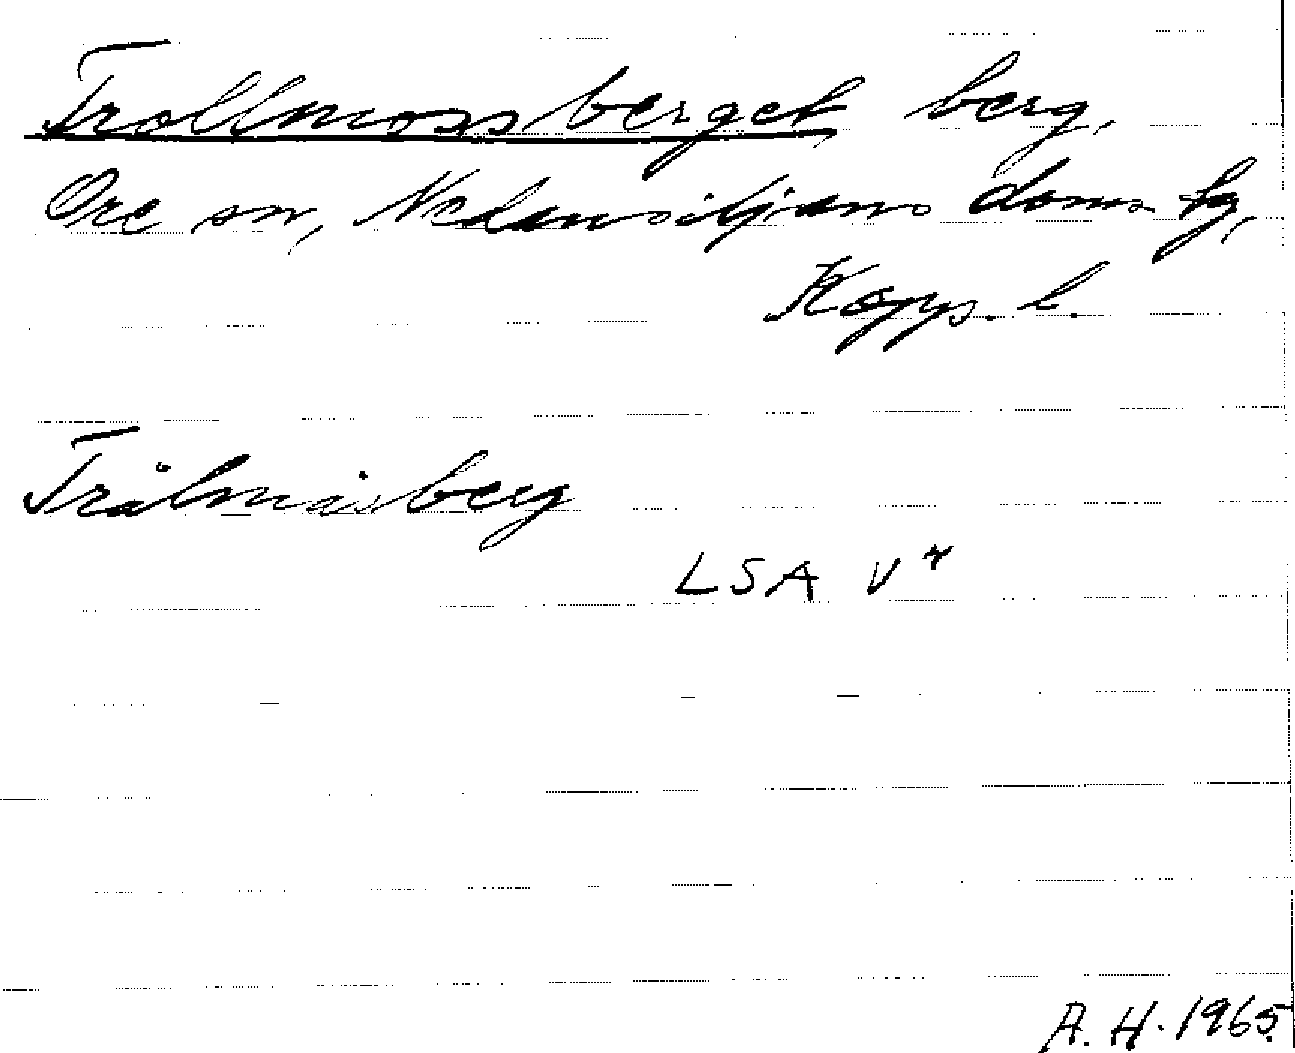 Trollmossberget, berg,
Ore sn, Nedansiljans doms. tg,
Kopp. l.
Trålmåsberg
LSA V
A. H. 1965